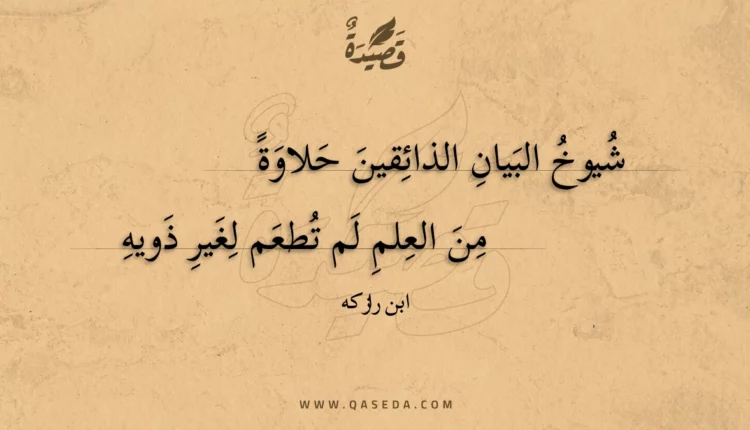 قَصِيدَةٌ
شُيوخُ البَيانِ الذائِقينَ حَلاوَةً
مِنَ العِلمِ لَم تُطعَم لِغَيرِ ذَويهِ
ابن رازكه
WWW.QASEDA.COM